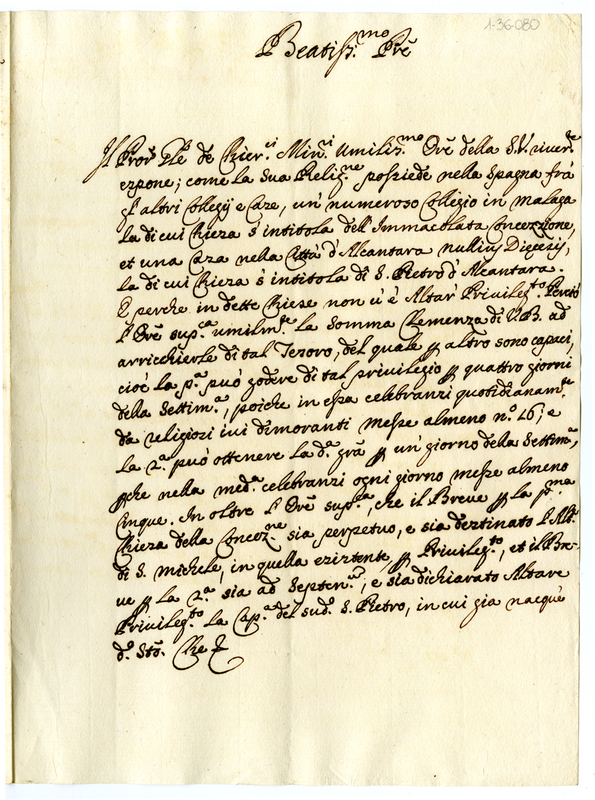 1-36-080
Beatiss.mo Prē
Il Prov.r Gle de Chier.ci Min.ri umiliss.mo Orē della S.V. river.te
espone; come la sua Relig.ne possiede nella Spagna frà
gl'altri Collegij e Case, un' numeroso Collegio in Malaga
la di cui Chiesa s'intitola dell'Immacolata Concezzione,
et una Casa nella Città d'Alcantara nullius Diecesis,
la di cui Chiesa s'intitola di S. Pietro d'Alcantara.
E perche in dette Chiese non v'è Altar' Privileg.to Perciò
l'Orē sup.ca umilm.te la somma Clemenza di V.B. ad
arricchierle di tal Tesoro, del quale per altro sono capaci,
cioè la p.a può godere di tal privilegio per quattro giorni
della Settim.a, poiche in essa celebransi quotidianam.te
da religiosi ivi dimoranti messe almeno n.o 16; e
la 2.a può ottenere la d.a grā per un' giorno della Settim.a,
perche nella med.a celebransi ogni giorno messe almeno
Cinque. In oltre l'Orē sup.ca, che il Breve per la p.ma
Chiesa della Concez.ne sia perpetuo, e sia destinato l'Alt.e
di S. Michele, in quella esistente, per Privileg.to, et il Bre-
ve per la 2.a sia ad Septen.m, e sia dichiarato Altare
Privileg.to la Cap.a del sud.o S. Pietro, in cui gia nacque
d.o Stō. Che &